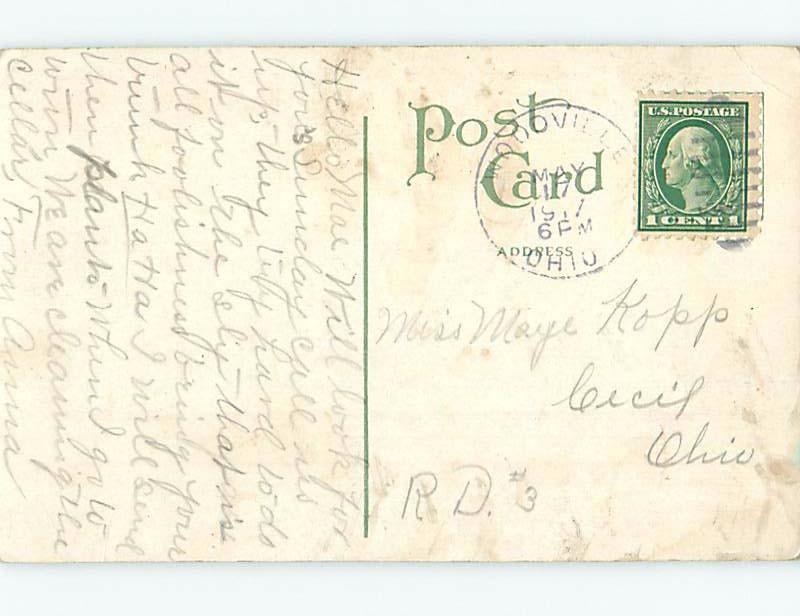 Hello Mae Will look for
you Sunday call us
up, they city hard to do
it on the sly - that is
all foolishness bring your
trunk Ha Ha I will send
them plants when I go to
town We are cleaning the
cellar, From Anna
Post Card
ADDRESS
WOODVILLE
MAY
17
1917
6 PM
OHIO
U.S. POSTAGE
1 CENT 1
Miss Maye Kopp
Cecil
Ohio
R D. #3